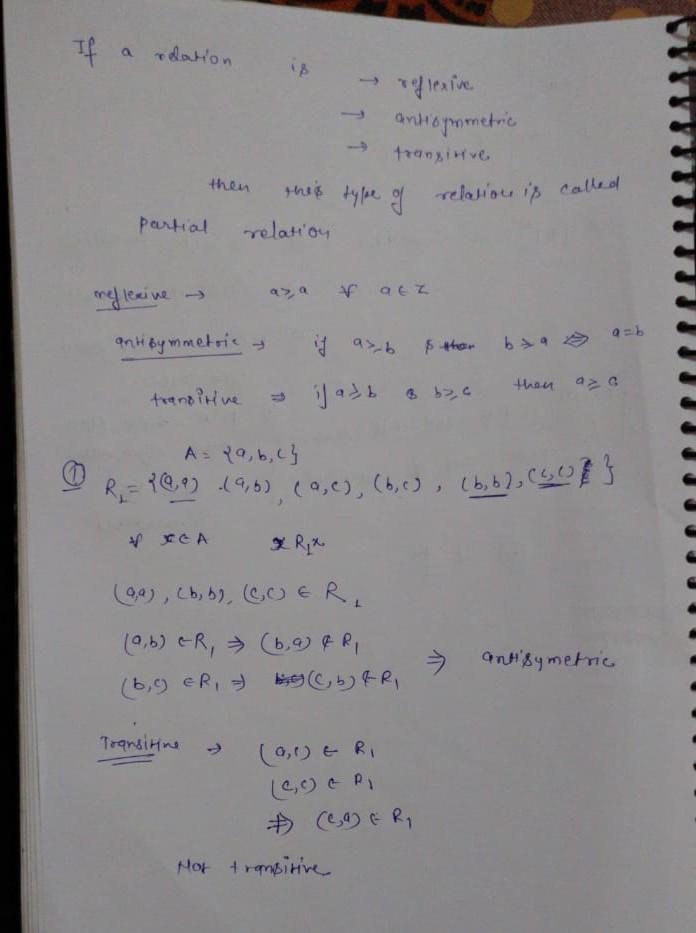 If a relation is → reflexive
→ antisymmetric
→ transitive
then this type of relation is called
Partial relation
reflexive → a ≥ a ∀ a ∈ Z
antisymmetric → if a ≥ b & then b ≥ a ⇔ a = b
transitive ⇒ if a ≥ b & b ≥ c then a ≥ c
A = {a, b, c}
① R₁ = {(a,a), (a,b), (a,c), (b,c), (b,b), (c,c)}
∀ x ∈ A x R₁ x
(a,a), (b,b), (c,c) ∈ R₁
(a,b) ∈ R₁ ⇒ (b,a) ∉ R₁
(b,c) ∈ R₁ ⇒ (c,b) ∉ R₁ ⇒ antisymetric
Transitive → (a,c) ∈ R₁
(c,c) ∈ R₁
⇏ (c,a) ∈ R₁
Not transitive